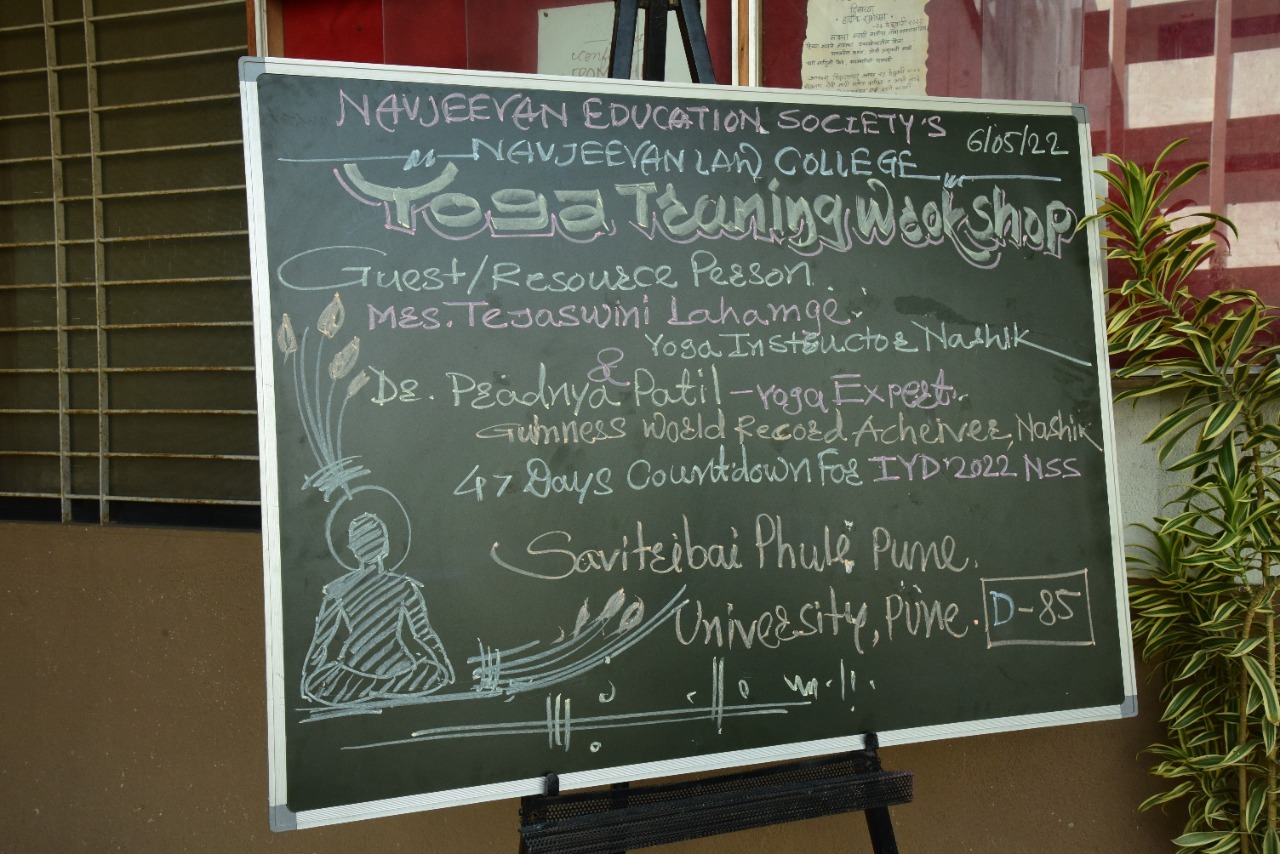 NAVJEEVAN EDUCATION SOCIETY'S
6/05/22
NAVJEEVAN LAW COLLEGE
Yoga Traning Workshop
Guest/Resource Person.
Mrs. Tejaswini Lahamge.
Yoga Instructor Nashik
&
Dr. Pradnya Patil - Yoga Expert.
Guinness World Record Acheiver, Nashik
47 Days Countdown For IYD'2022 NSS
Savitribai Phule Pune.
University, Pune.
D-85